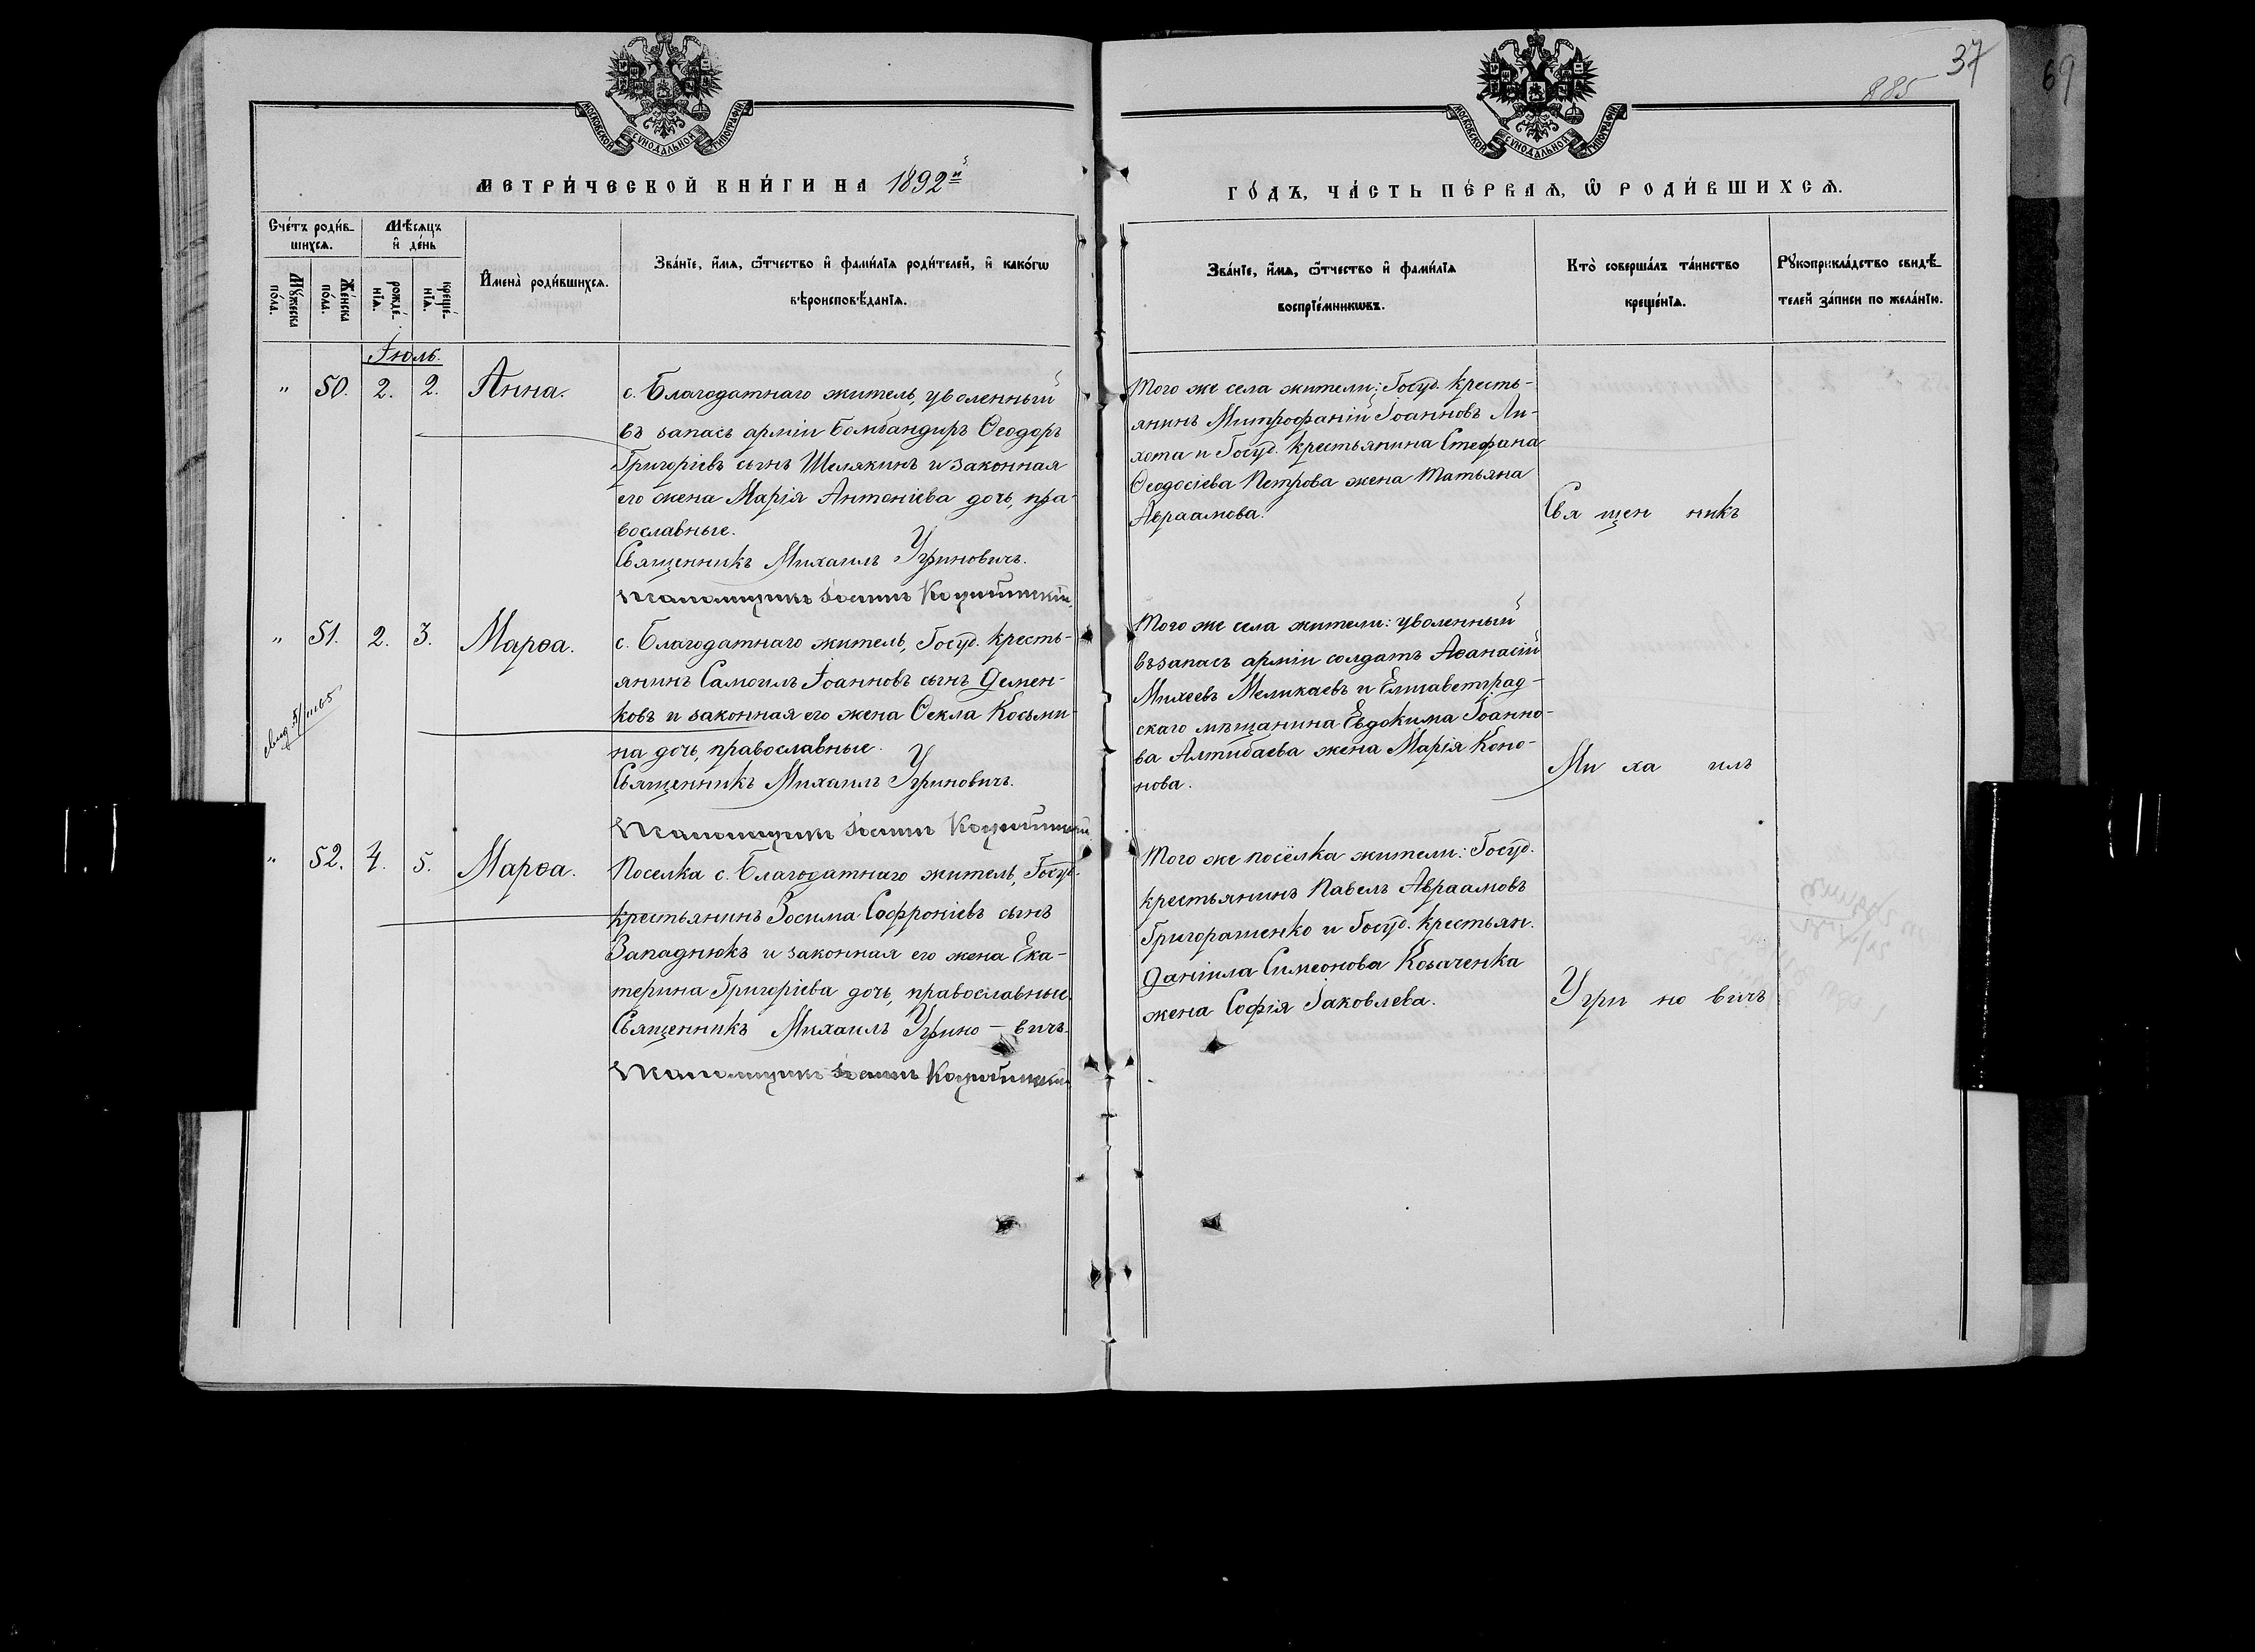 37
885
69
МОСКОВСКОЙ СѴНОДАЛЬНОЙ ТИПОГРАФІИ
МОСКОВСКОЙ СѴНОДАЛЬНОЙ ТИПОГРАФІИ
МЕТРИ́ЧЕСКОЙ КНИ́ГИ НА 1892й
ГО́ДЪ, ЧА́СТЬ ПЕ́РВАѦ, Ѿ РОДИ́ВШИХСѦ.
Сче́тъ роди́в-
шихсѧ.
Мѣ́сѧцъ
и҆ де́нь
Мꙋ́жеска
по́ла.
Же́нска
по́ла.
рожде́-
нїѧ.
креще́-
нїѧ.
И҆мена̀ роди́вшихсѧ.
Зва́нїе, и҆́мѧ, ѻ҆́тчество и҆ фами́лїѧ роди́телей, и҆ како́гѡ
вѣроисповѣ́данїѧ.
Зва́нїе, и҆́мѧ, ѻ҆́тчество и҆ фами́лїѧ
воспрїе́мникѡвъ.
Кто̀ соверша́лъ та́инство
креще́нїѧ.
Рꙋкоприкла́дство свидѣ́-
телей за́писи по жела́нїю.
Іюль.
" 50. 2. 2. Анна.
с. Благодатнаго житель, уволенный
въ запасъ арміи бомбандиръ Ѳеодоръ
Григоріевъ сынъ Шелякинъ и законная
его жена Марія Антоніева дочь, пра-
вославные.
Священникъ Михаилъ Угриновичъ.
Псаломщикъ
Того же села жители: Госуд. кресть-
янинъ Митрофаній Іоанновъ Ли-
хота и Госуд. крестьянина Стефана
Ѳеодосіева Петрова жена Татьяна
Авраамова.
Свя щен никъ
" 51. 2. 3. Марѳа.
с. Благодатнаго житель, Госуд. кресть-
янинъ Самоилъ Іоанновъ сынъ Демен-
ковъ и законная его жена Ѳекла Косьми-
на дочь, православные.
Священникъ Михаилъ Угриновичъ.
Псаломщикъ
Того же села жители: уволенный
въ запасъ арміи солдатъ Аѳанасій
Михеевъ Меликаевъ и Елисаветград-
скаго мѣщанина Евдокима Іоанно-
ва Алтибаева жена Марія Коно-
нова.
Ми ха илъ
" 52. 4. 5. Марѳа.
Поселка с. Благодатнаго житель, Госуд.
крестьянинъ Зосима Софроніевъ сынъ
Западнюкъ и законная его жена Ека-
терина Григоріева дочь, православные.
Священникъ Михаилъ Угрино-вичъ.
Псаломщикъ
Того же посёлка жители: Госуд.
крестьянинъ Павелъ Авраамовъ
Григорашенко и Госуд. крестьян.
Даніила Симеонова Козаченка
жена Софія Іаковлева.
Угри но вичъ